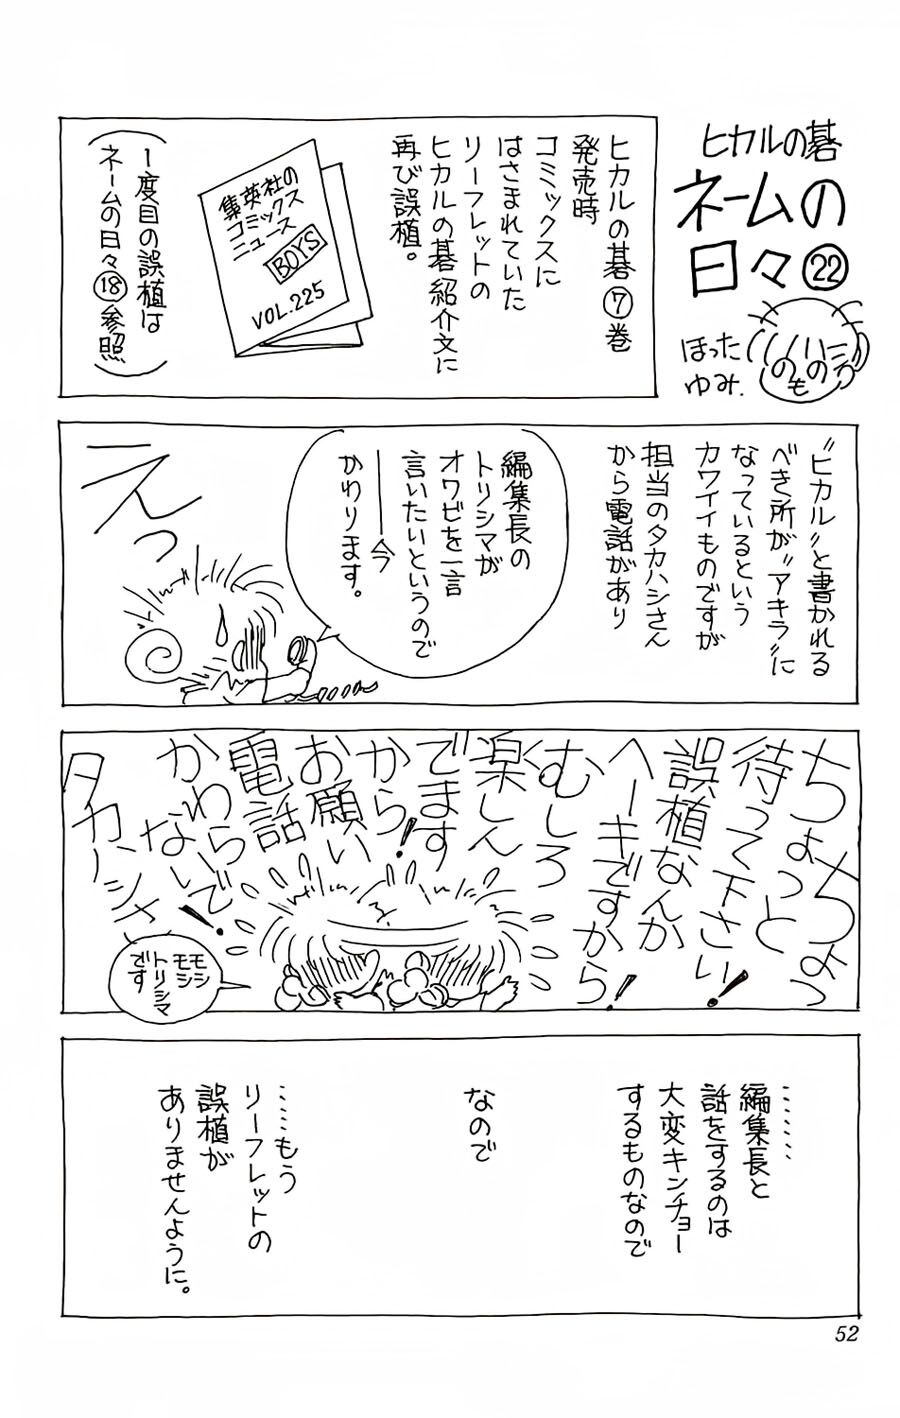 ヒカルの碁
ネームの
日々㉒
ほった
ゆみ.
ヒカルの碁⑦巻
発売時
コミックスに
はさまれていた
リーフレットの
ヒカルの碁紹介文に
再び誤植。
集英社の
コミックス
ニュース
BOYS
VOL.225
(1度目の誤植は
ネームの日々⑱参照)
〝ヒカル〟と書かれる
べき所が〝アキラ〟に
なっているという
カワイイものですが
担当のタカハシさん
から電話があり
編集長の
トリシマが
オワビを一言
言いたいというので
――今
かわります。
えっ
ちょちょっ
ちょっと
待って下さい!
誤植なんか
ヘーキですから!
むしろ
楽しん
でます
から!
お願い
電話
かわらないで!
タカハシさ
モシ
モシ
トリシマ
です
………
編集長と
話をするのは
大変キンチョー
するものなので
なので
……もう
リーフレットの
誤植が
ありませんように。
52